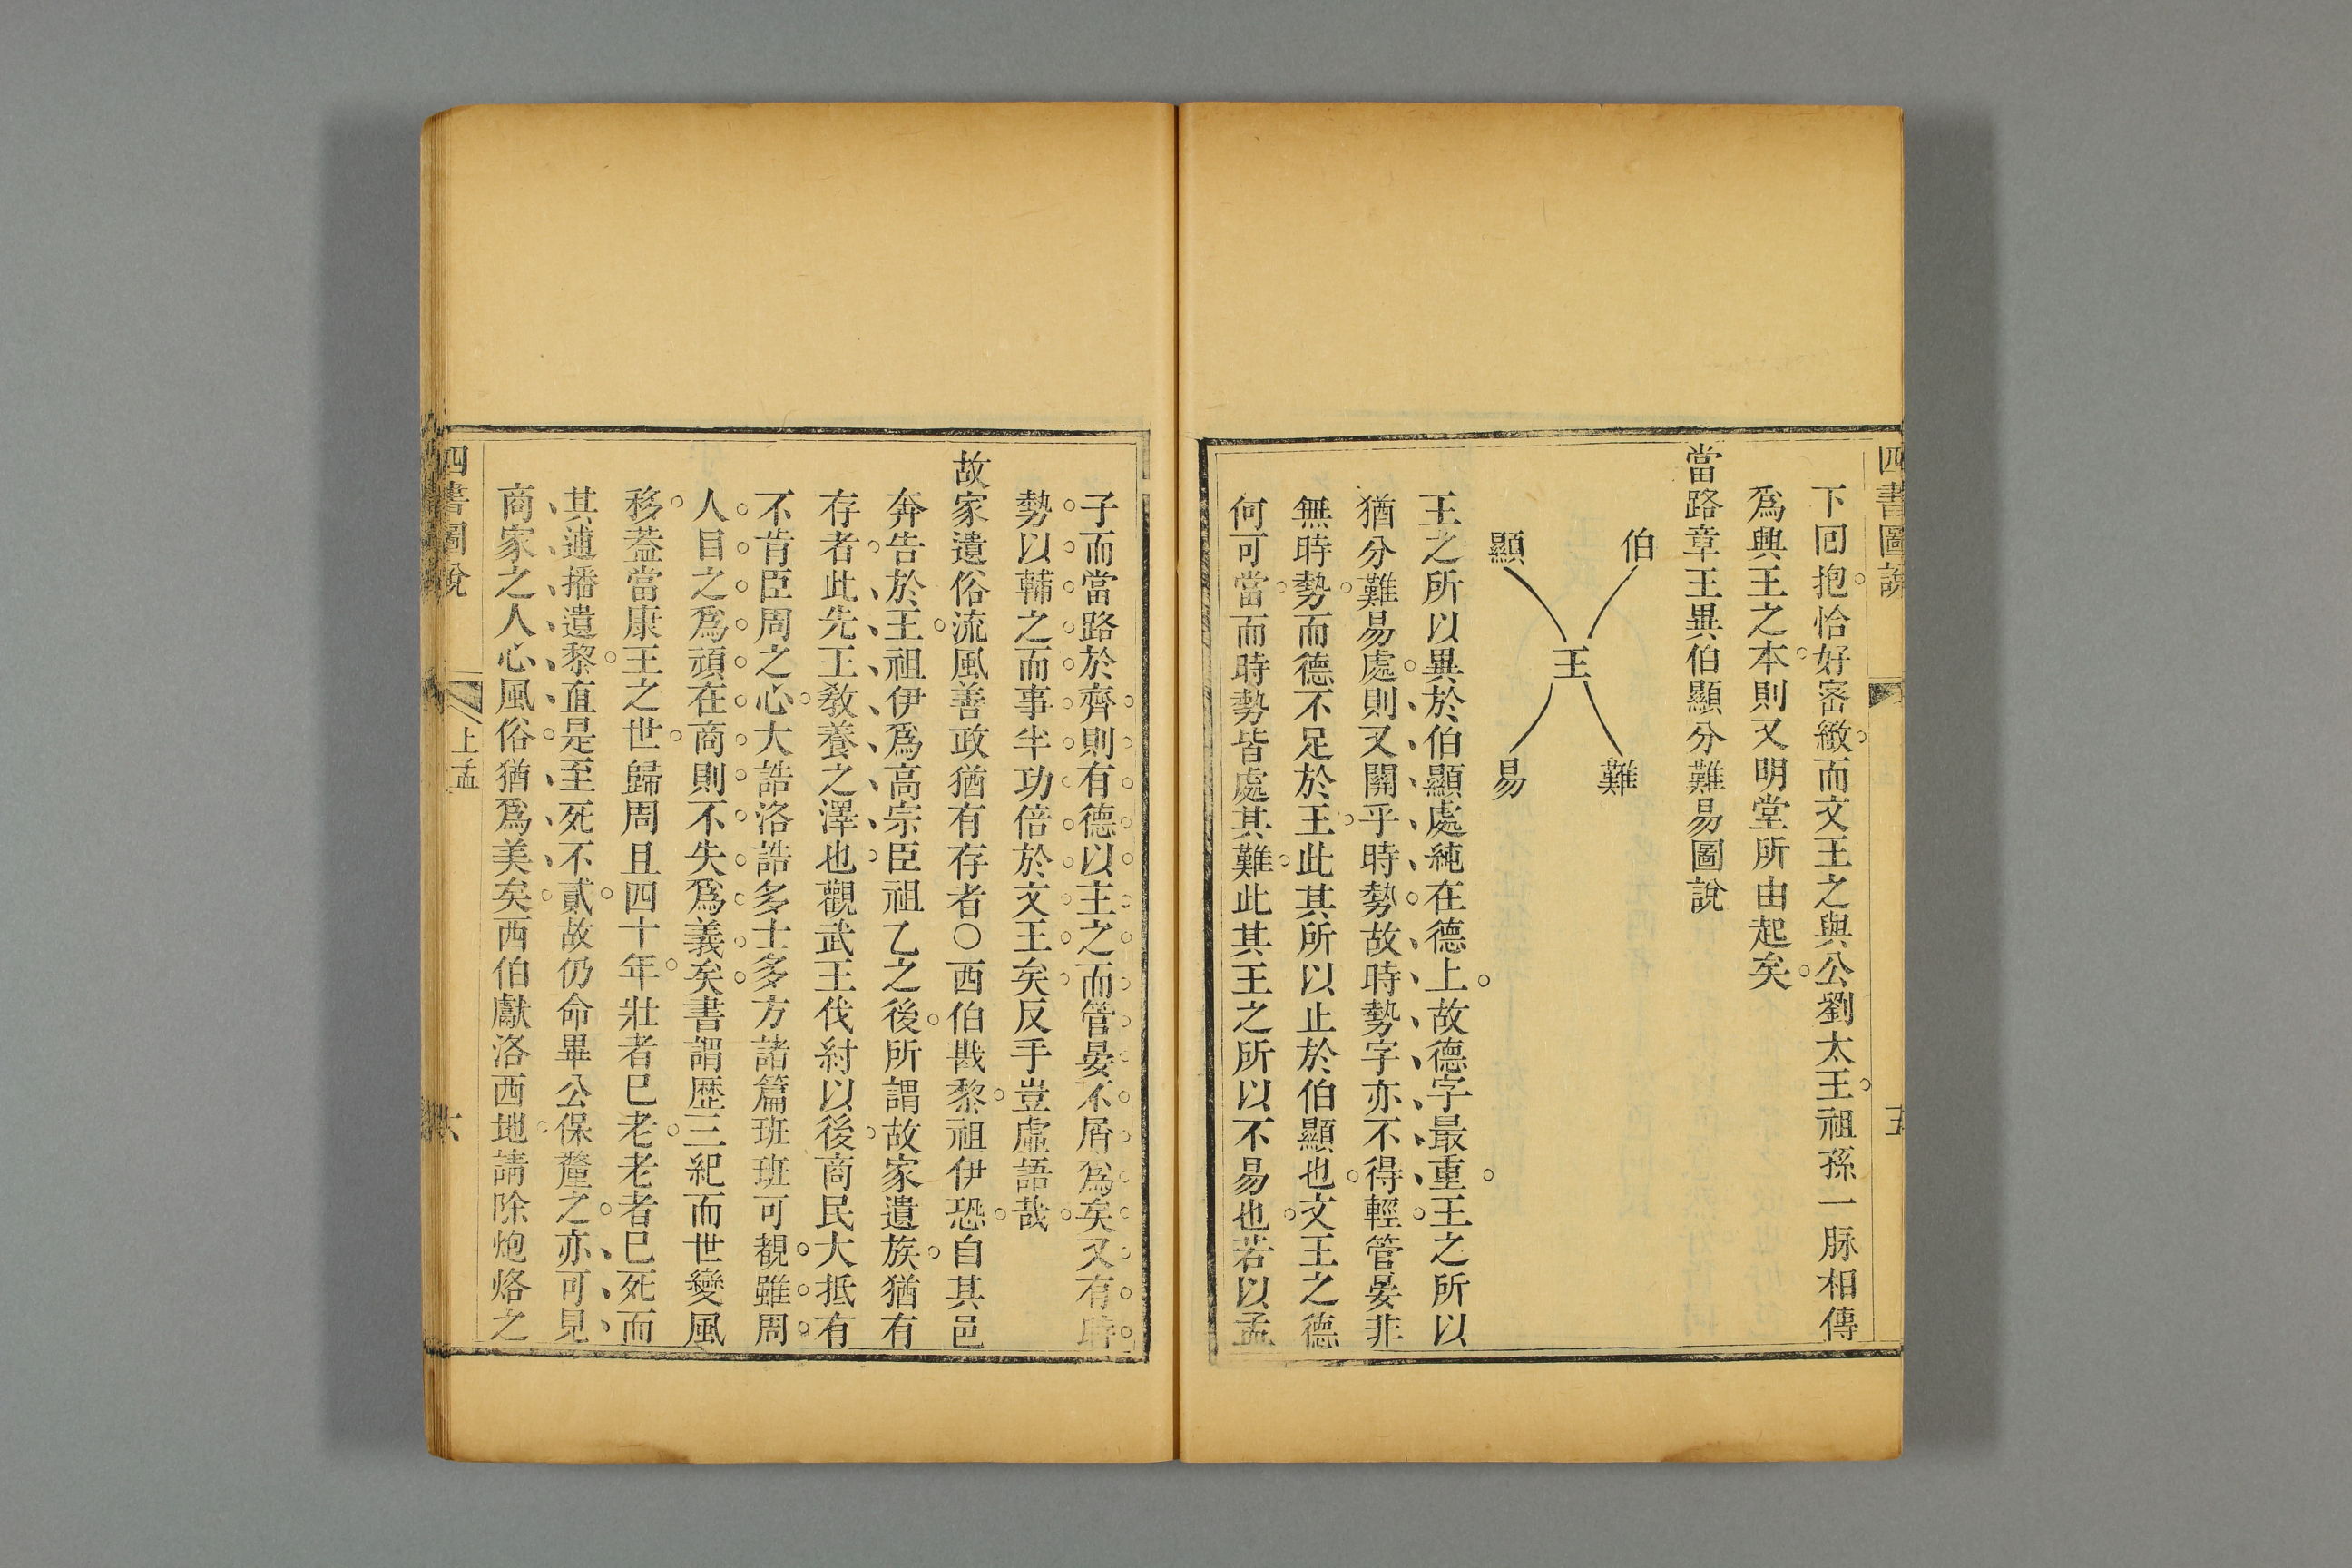 四書圖說
五
下回抱恰好宻緻而文王之與公劉太王祖孫一脉相傳
爲興王之本則又明堂所由起矣
當路章王異伯顯分難易圖說
伯
顯
王
難
易
王之所以異於伯顯處純在德上故德字最重王之所以
猶分難易處則又關乎時勢故時勢字亦不得輕管晏非
無時勢而德不足於王此其所以止於伯顯也文王之德
何可當而時勢皆處其難此其王之所以不易也若以孟
子而當路於齊則有德以主之而管晏不屑爲矣又有時
勢以輔之而事半功倍於文王矣反手豈虛語哉
故家遺俗流風善政猶有存者○西伯戡黎祖伊恐自其邑
奔告於王祖伊爲高宗臣祖乙之後所謂故家遺族猶有
存者此先王敎養之澤也觀武王伐紂以後商民大抵有
不肯臣周之心大誥洛誥多士多方諸篇班班可覩雖周
人目之爲頑在商則不失爲義矣書謂歷三紀而世變風
移葢當康王之世歸周且四十年壯者已老老者已死而
其逋播遺黎直是至死不貳故仍命畢公保釐之亦可見
商家之人心風俗猶爲美矣西伯獻洛西地請除炮烙之
四書圖說
上孟
六